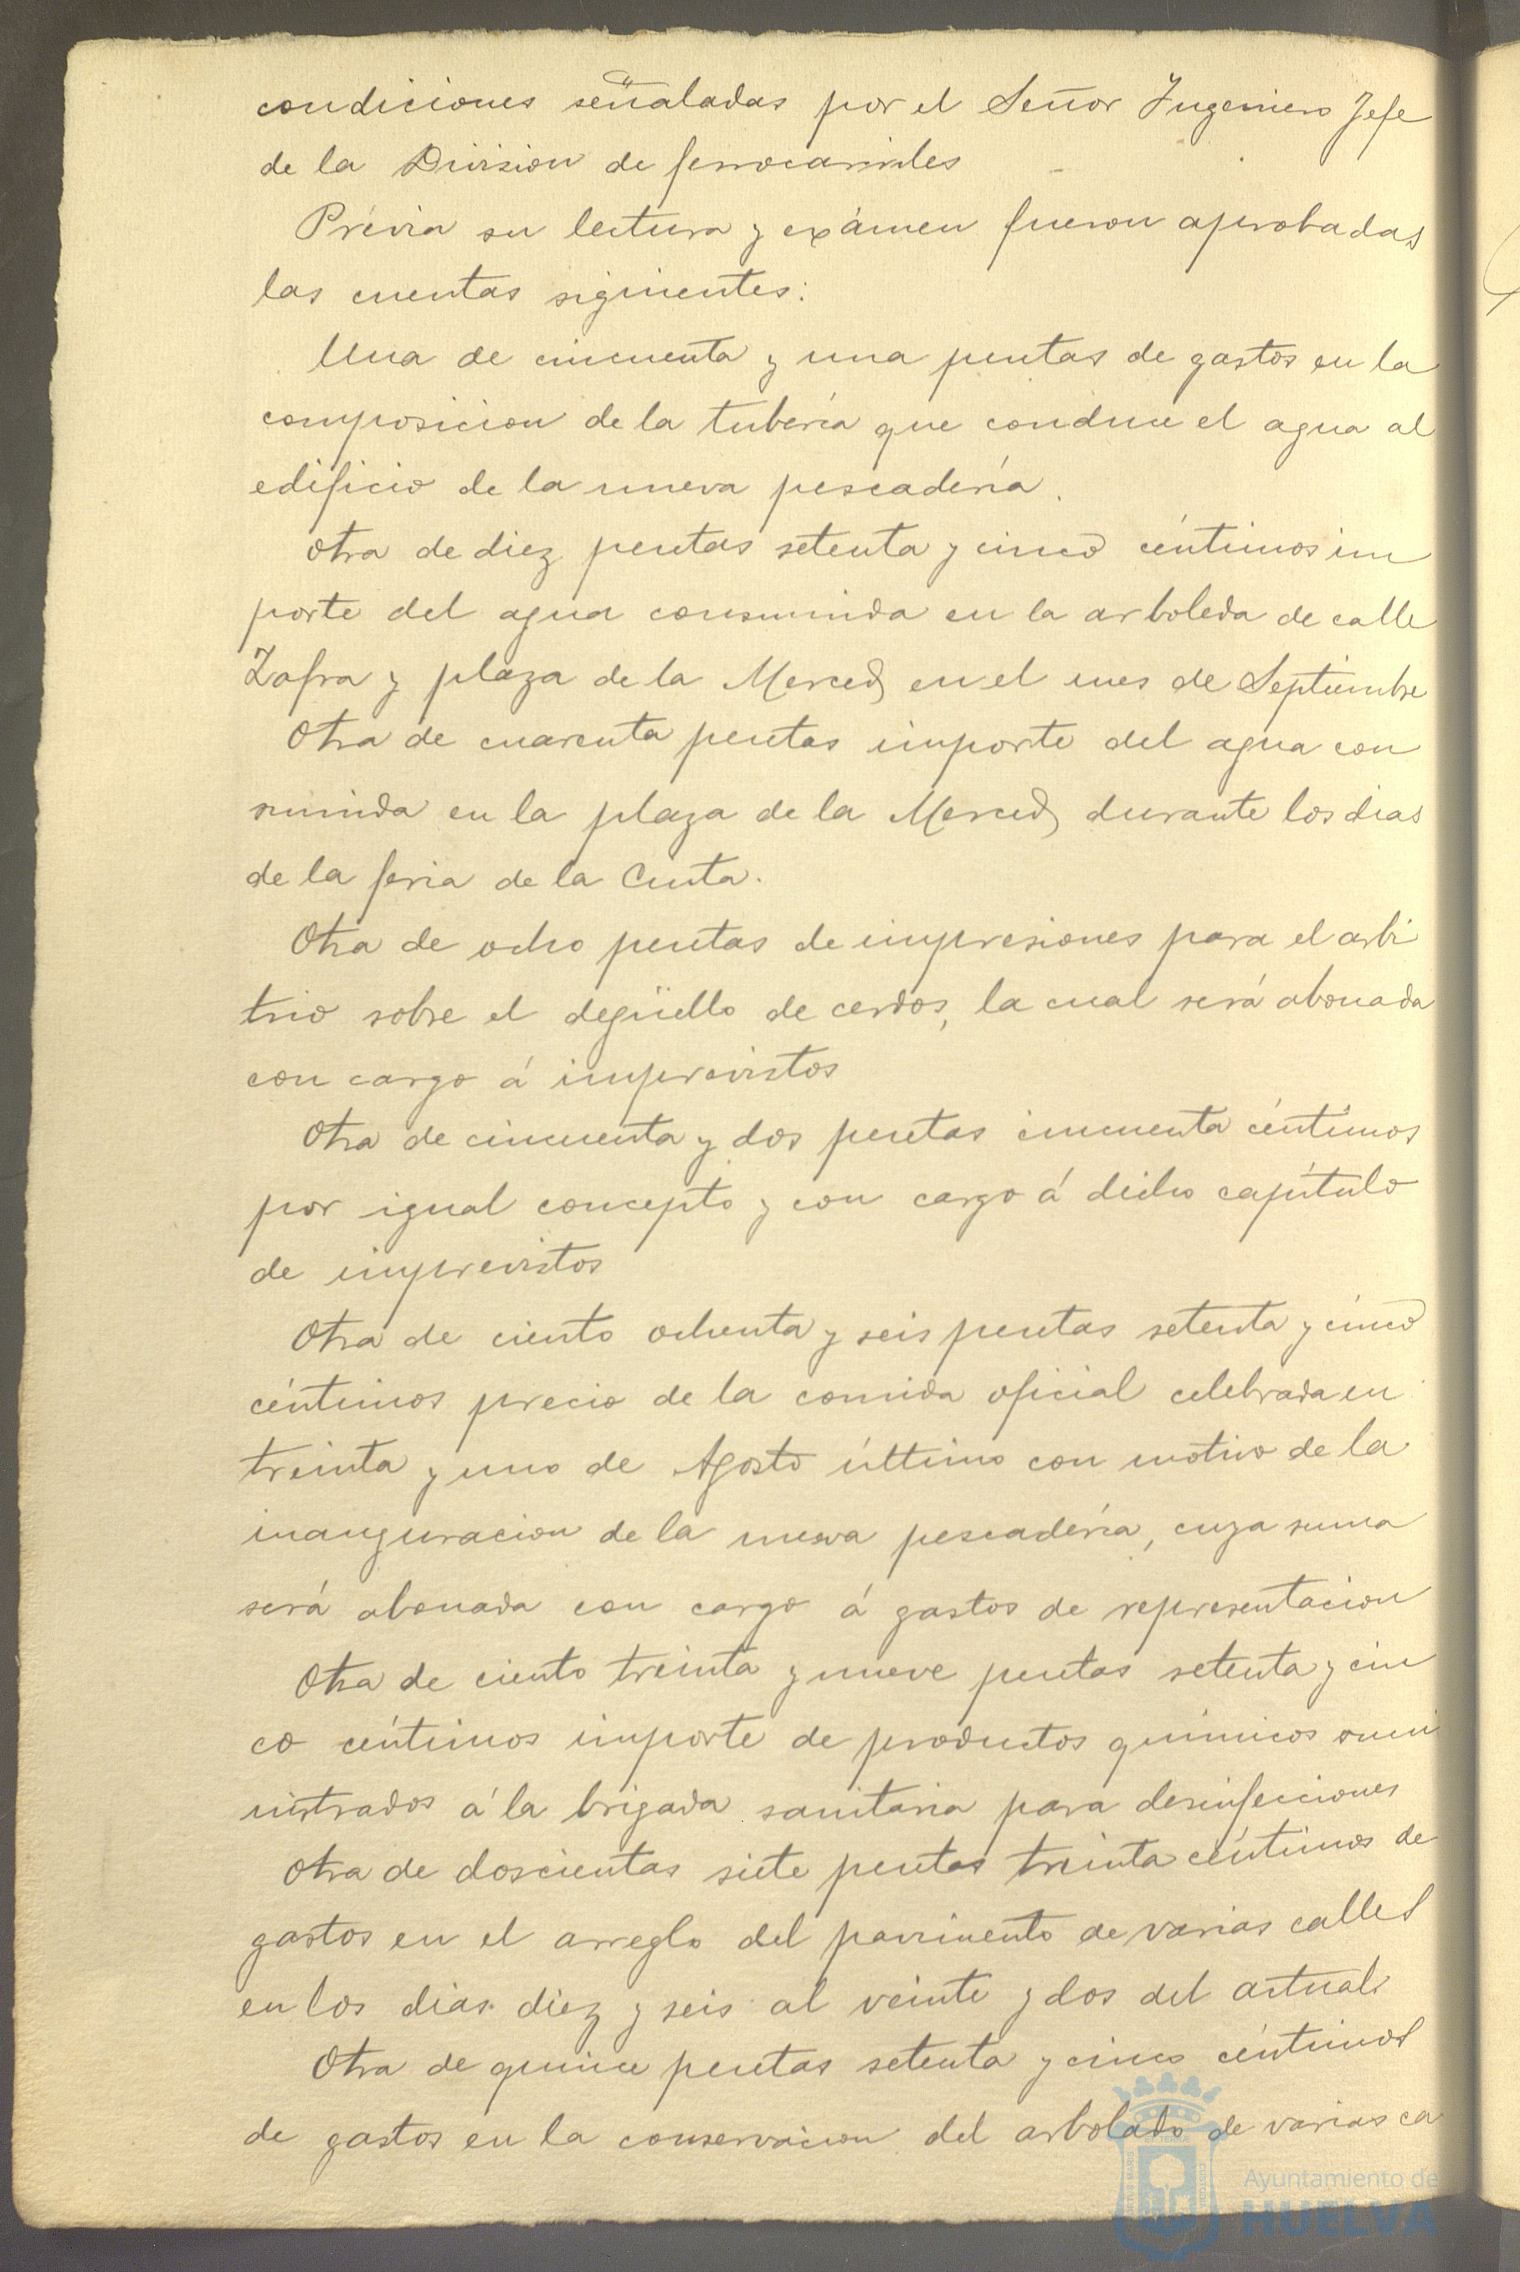 condiciones señaladas por el Señor Ingeniero Jefe
de la Division de ferrocarriles
Prévia su lectura y exámen fueron aprobadas
las cuentas siguientes:
Una de cincuenta y una pesetas de gastos en la
composicion de la tubería que conduce el agua al
edificio de la nueva pescadería.
Otra de diez pesetas setenta y cinco céntimos im
porte del agua consumida en la arboleda de calle
Zafra y plaza de la Merced en el mes de Septiembre
Otra de cuarenta pesetas importe del agua con
sumida en la plaza de la Merced durante los dias
de la feria de la Cinta.
Otra de ocho pesetas de impresiones para el arbi
trio sobre el degüello de cerdos, la cual será abonada
con cargo á imprevistos
Otra de cincuenta y dos pesetas cincuenta céntimos
por igual concepto y con cargo á dicho capítulo
de imprevistos
Otra de ciento ochenta y seis pesetas setenta y cinco
céntimos precio de la comida oficial celebrada en
treinta y uno de Agosto último con motivo de la
inauguracion de la nueva pescadería, cuya suma
será abonada con cargo á gastos de representacion
Otra de ciento treinta y nueve pesetas setenta y cin
co céntimos importe de productos químicos sumi
nistrados á la brigada sanitaria para desinfecciones
Otra de doscientas siete pesetas treinta céntimos de
gastos en el arreglo del pavimento de varias calles
en los dias diez y seis al veinte y dos del actual
Otra de quince pesetas setenta y cinco céntimos
de gastos en la conservacion del arbolado de varias ca
Ayuntamiento de
HUELVA